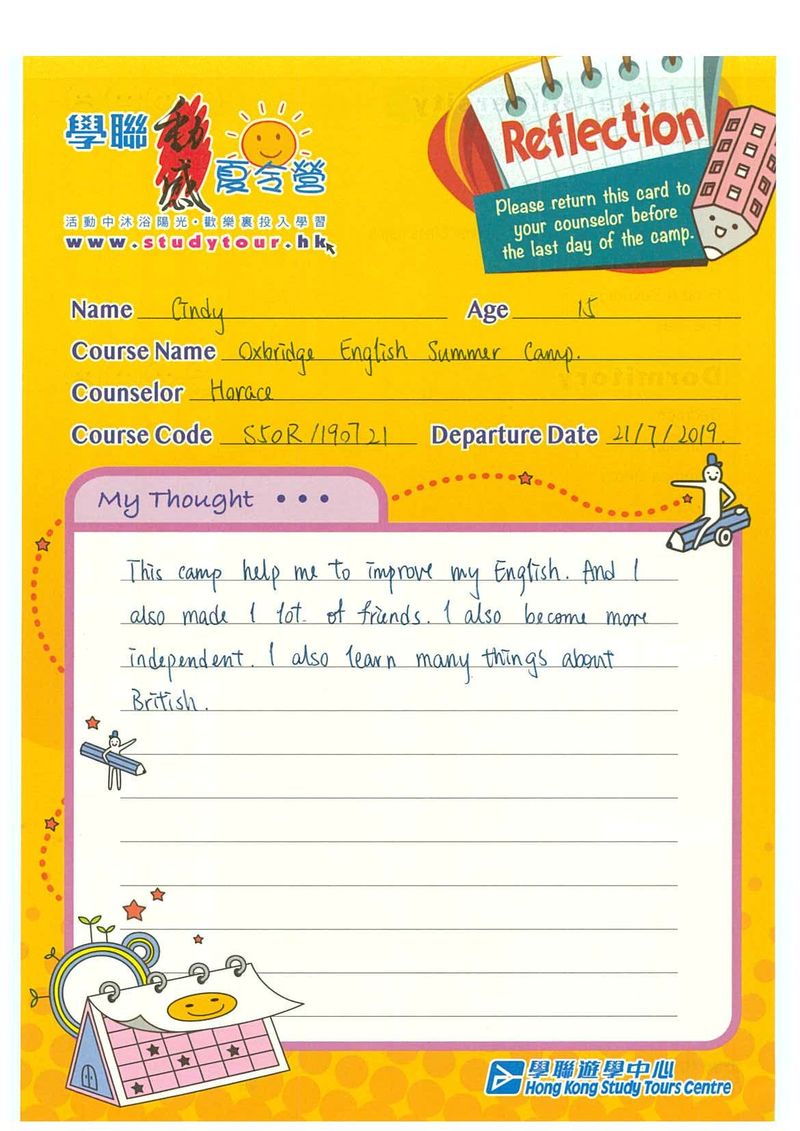 學聯 動感 夏令營
活動中沐浴陽光·歡樂裏投入學習
www.studytour.hk
Reflection
Please return this card to
your counselor before
the last day of the camp.
Name Cindy Age 15
Course Name Oxbridge English Summer Camp.
Counselor Horace
Course Code S50R/190721 Departure Date 21/7/2019.
My Thought • • •
This camp help me to improve my English. And I
also made 1 lot of friends. I also become more
independent. I also learn many things about
British.
學聯遊學中心
Hong Kong Study Tours Centre